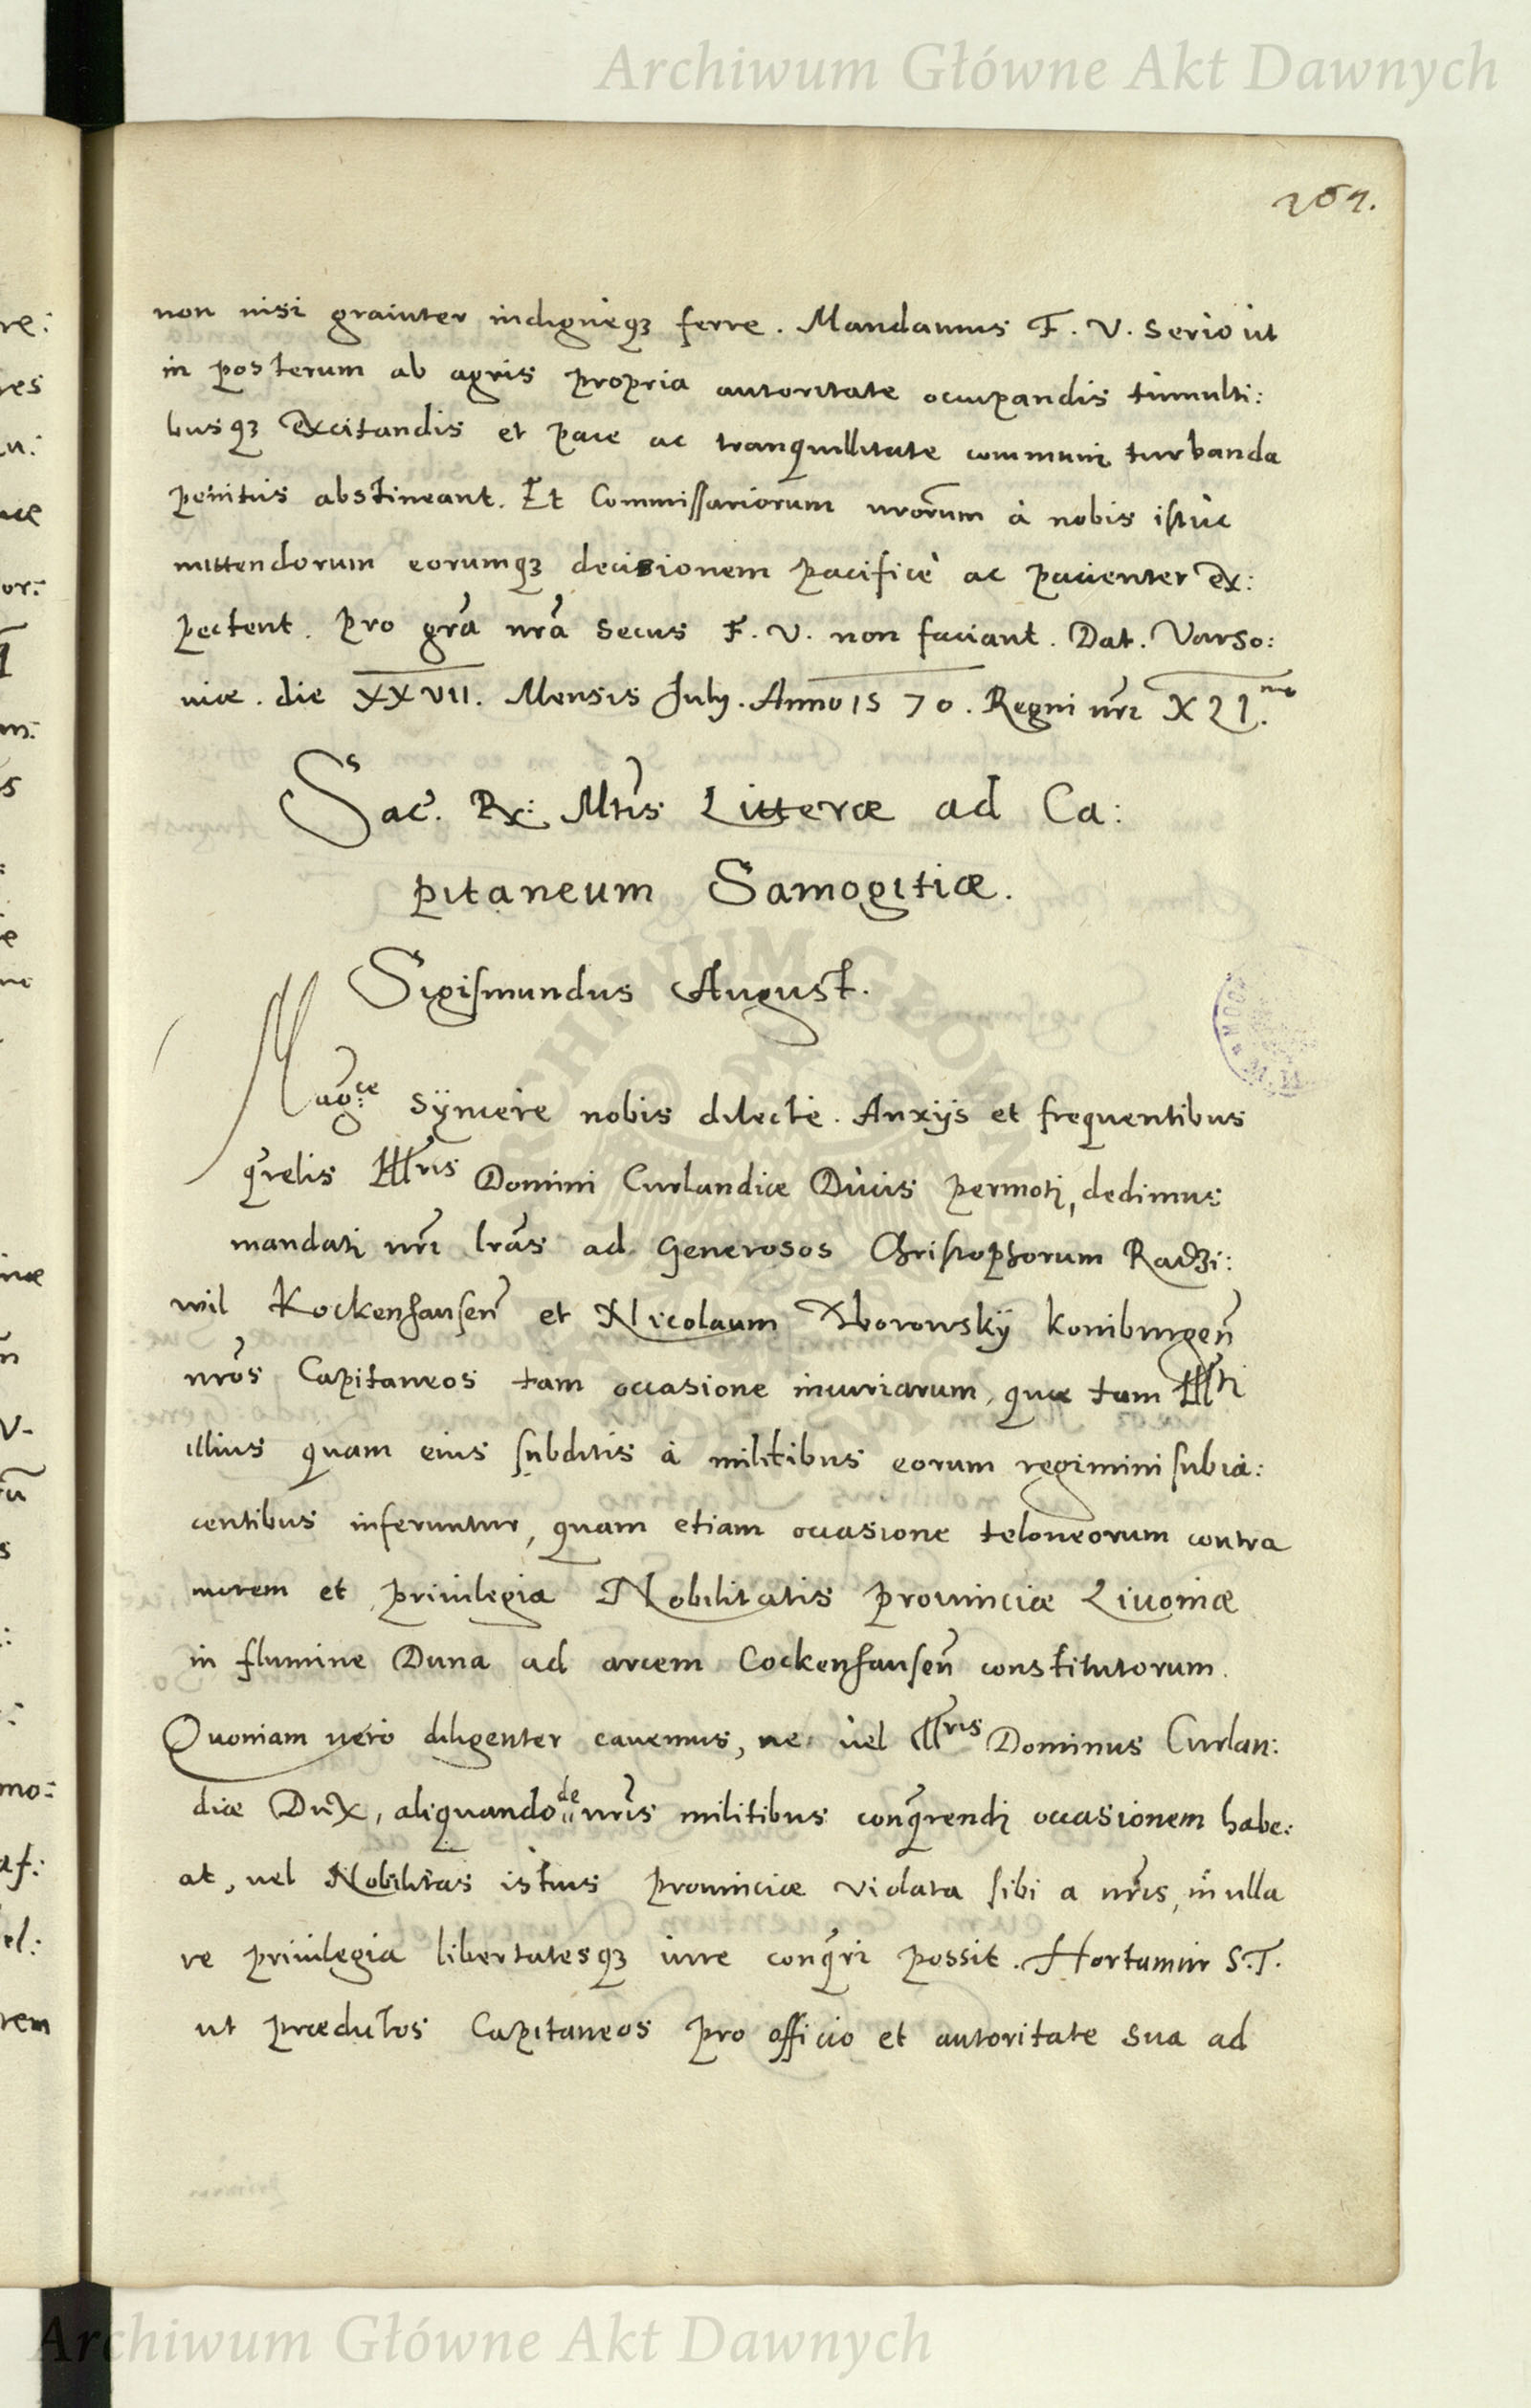 Archiwum Główne Akt Dawnych
207.
non nisi grauiter indigneqȝ ferre. Mandamus F. V. serio ut
in posterum ab agris propria autoritate occupandis tumulti:
busqȝ excitandis et pace ac tranquillitate communi turbanda
penitus abstineant. Et Commissariorum nrorum à nobis istuc
mittendorum eorumqȝ decisionem pacificè ac pacienter ex:
pectent. Pro gra nra secus F. V. non faciant. Dat. Varso:
uiæ. die XXVII. Mensis July. Anno 1570. Regni nri X21.mo
Sac. Rx: Mtis Litteræ ad Ca:
pitaneum Samogitiæ.
Sigismundus August.
Magce syncere nobis dilecte. Anxijs et frequentibus
qrelis Illris Domini Curlandiæ Ducis permoti, dedimus
mandati nri lras ad Generosos Christophorum Radzi:
wil Kockenhausen et Nicolaum Zborowskÿ
nros Capitaneos tam occasione iniuriarum, quæ tam Illti
illius quam eius subditis à militibus eorum regimini subia:
centibus inferuntur, quam etiam occasione teloneorum contra
morem et priuilegia Nobilitatis prouinciæ Liuoniæ
in flumine Duna ad arcem Cockenhausen constitutorum.
Quoniam uerò diligenter cauemus, ne uel Illris Dominus Curlan:
diæ Dux, aliquando de nris militibus conqrendi occasionem habe:
at, uel Nobilitas istius prouinciæ violata sibi a nris, in ulla
re priuilegia libertatesqȝ iure conqri possit. Hortamur S.T.
ut prædictos Capitaneos pro officio et autoritate sua ad
Archiwum Główne Akt Dawnych